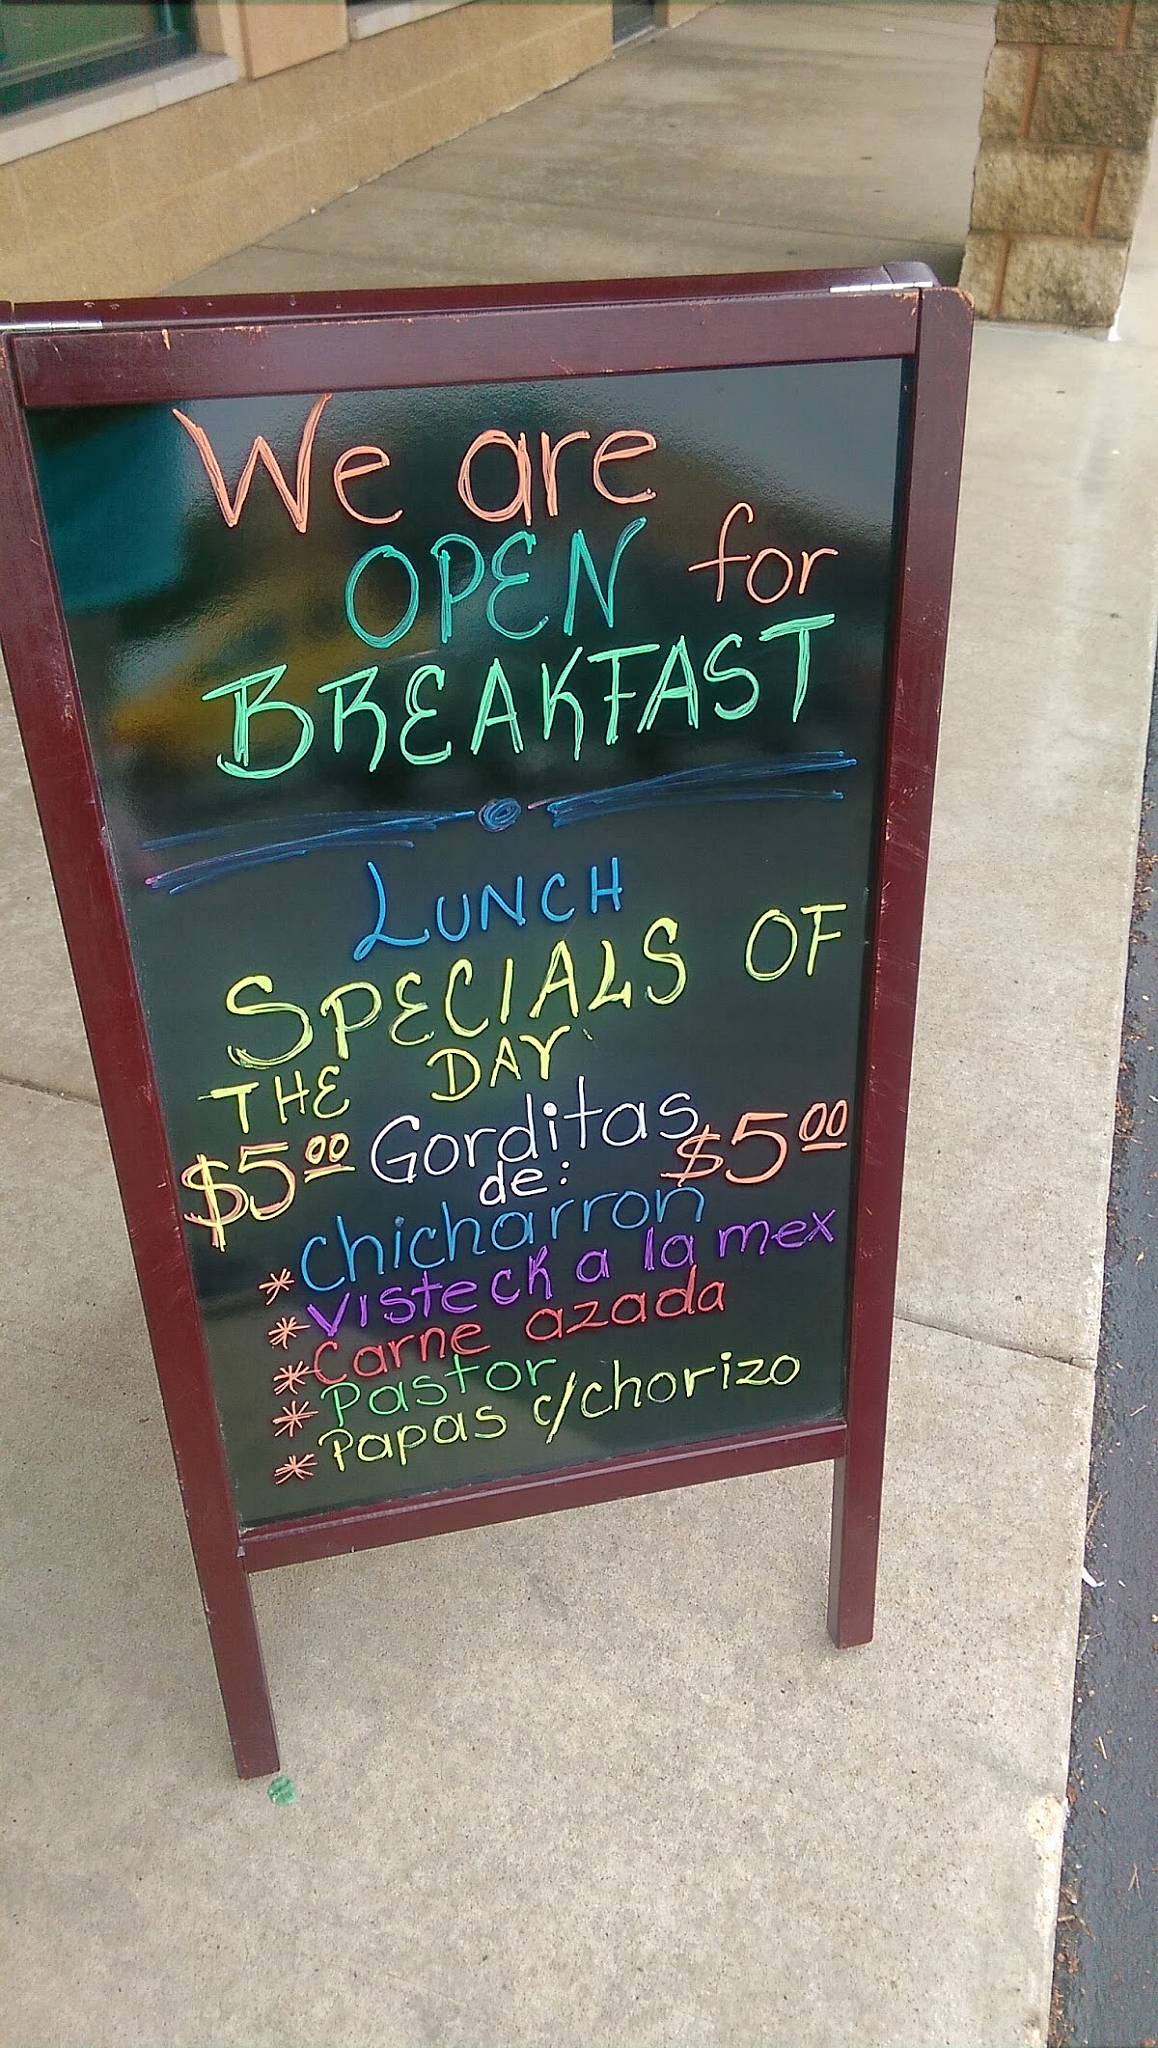 We are
OPEN for
BREAKFAST
LUNCH
SPECIALS OF
THE DAY
$5.00 Gorditas $5.00
de:
* Chicharron
* Visteck a la mex
* Carne azada
* Pastor
* Papas c/chorizo